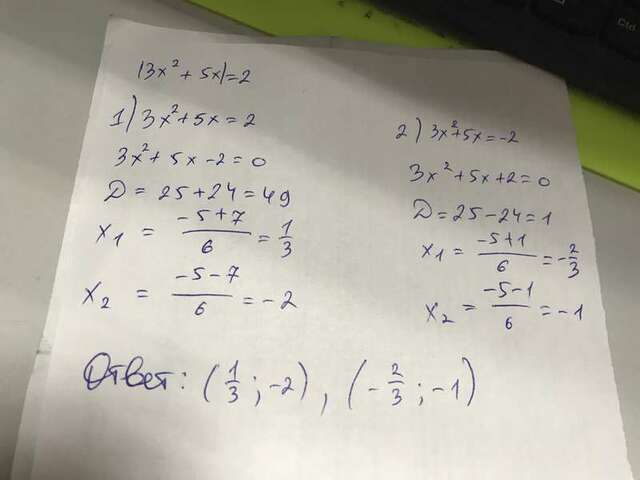 |3x² + 5x| = 2
1) 3x² + 5x = 2
3x² + 5x - 2 = 0
D = 25 + 24 = 49
x₁ = (-5 + 7)/6 = 1/3
x₂ = (-5 - 7)/6 = -2
2) 3x² + 5x = -2
3x² + 5x + 2 = 0
D = 25 - 24 = 1
x₁ = (-5 + 1)/6 = -2/3
x₂ = (-5 - 1)/6 = -1
Ответ: (1/3 ; -2), (-2/3 ; -1)